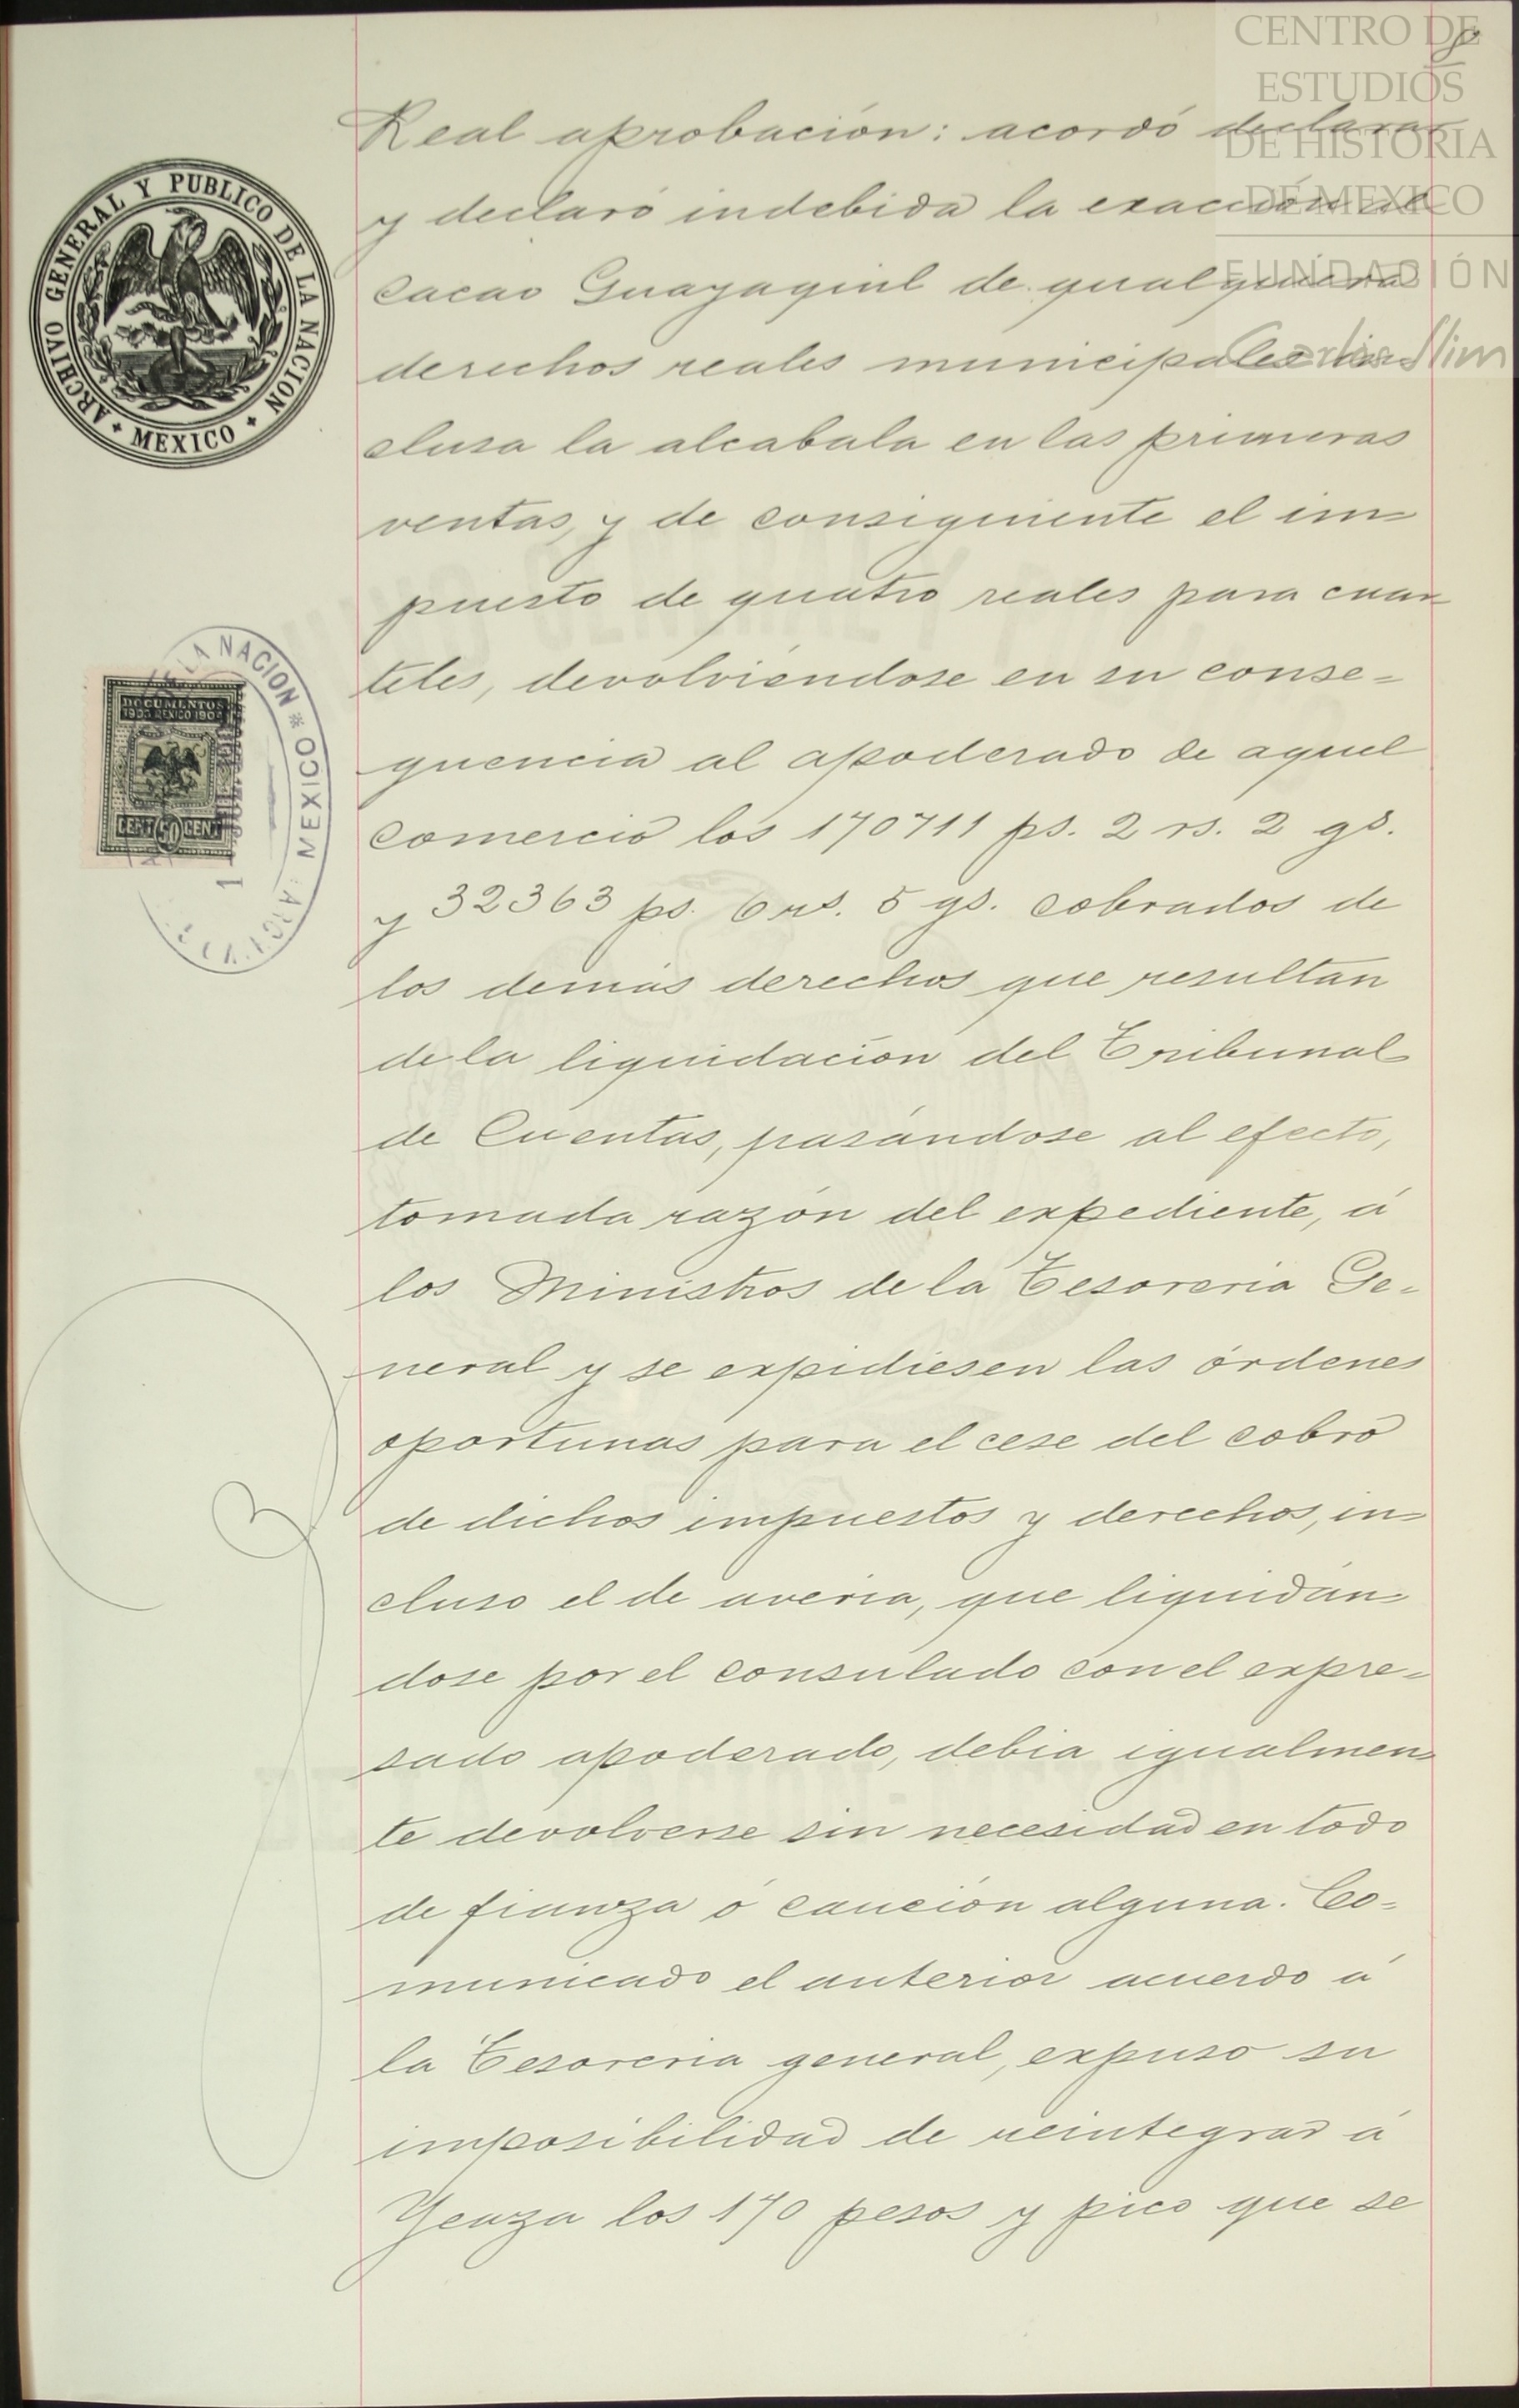 CENTRO DE
ESTUDIOS
DE HISTORIA
DE MEXICO
FUNDACIÓN
Carlos Slim
8
ARCHIVO GENERAL Y PUBLICO DE LA NACION
MEXICO
DE LA NACION * MEXICO
DOCUMENTOS
MEXICO
CENT 50 CENT
Real aprobación: acordó declarar
y declaró indebida la exacción al
cacao Guayaquil de qualquiera
derechos reales municipales in=
clusa la alcabala en las primeras
ventas, y de consiguiente el im=
puesto de quatro reales para cuar=
teles, devolviéndose en su conse=
quencia al apoderado de aquel
comercio los 170711 ps. 2 rs. 2 gs.
y 32363 ps. 6 rs. 5 gs. cobrados de
los demás derechos que resultan
de la liquidación del Tribunal
de Cuentas, pasándose al efecto,
tomada razón del expediente, á
los Ministros de la Tesoreria Ge=
neral y se expidiesen las órdenes
oportunas para el cese del cobro
de dichos impuestos y derechos, in=
cluso el de averia, que liquidán=
dose por el consulado con el expre=
sado apoderado, debia igualmen=
te devolverse sin necesidad en todo
de fianza ó caución alguna. Co=
municado el anterior acuerdo á
la Tesoreria general, expuso su
imposibilidad de reintegrar á
Yeaza los 170 pesos y pico que se